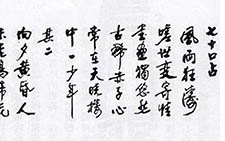 七十口占
風雨狂濤
世變寄情
書畫獨悠然
古稀赤子心
常在天樓
中一少年
其二
向夕黄昏人